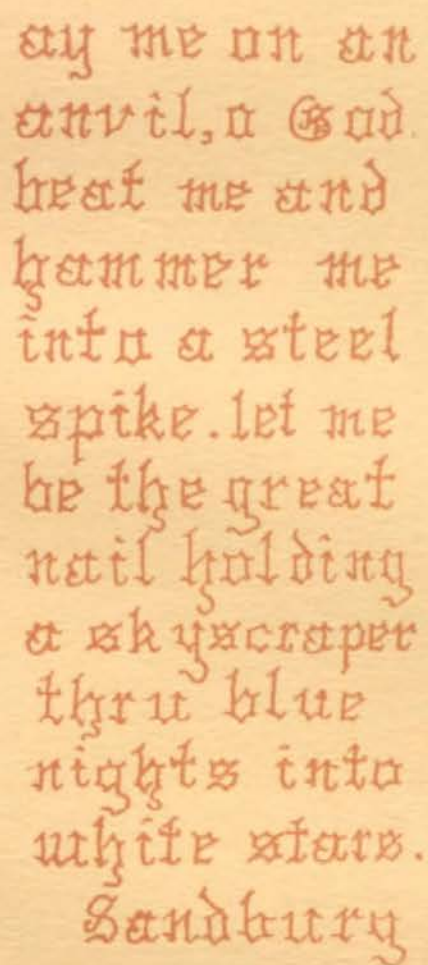 ay me on an
anvil, o God.
beat me and
hammer me
into a steel
spike. let me
be the great
nail holding
a skyscraper
thru blue
nights into
white stars.
Sandburg